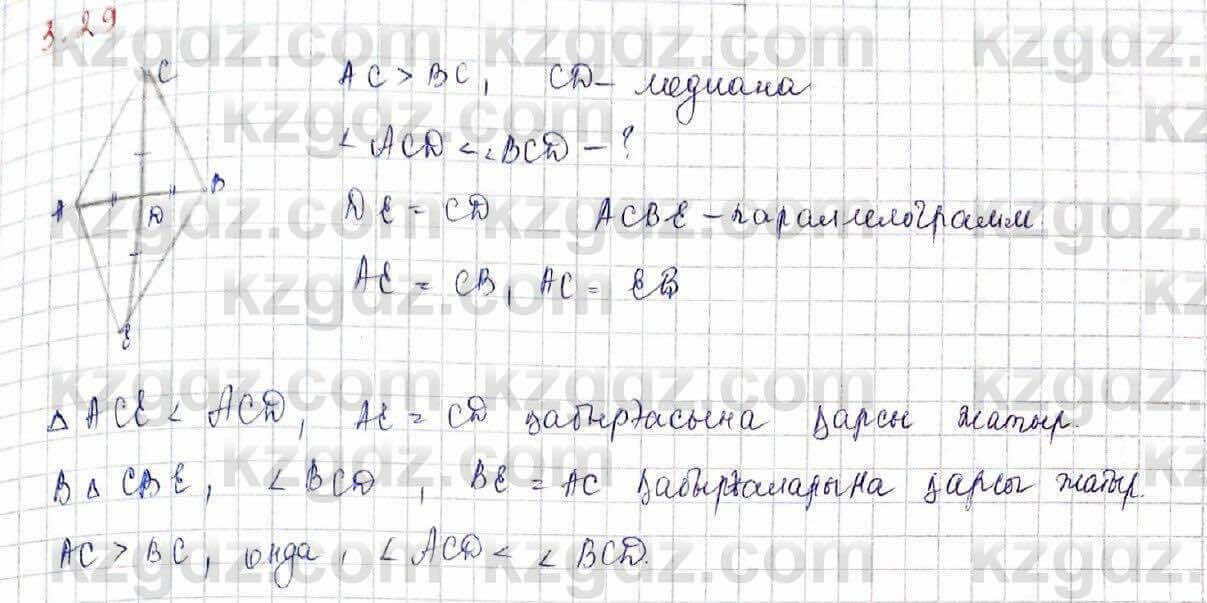 3.29
C
AC > BC, CD - медиана
< ACD < < BCD - ?
A D B
DE = CD ACBE - параллелограмм
AE = CB, AC = EB
E
△ ACE < ACD, AE = CD қабырғасына қарсы жатыр.
В △ CBE, < BCD, BE = AC қабырғаларына қарсы жатыр.
AC > BC, онда, < ACD < < BCD.
kzgdz.com